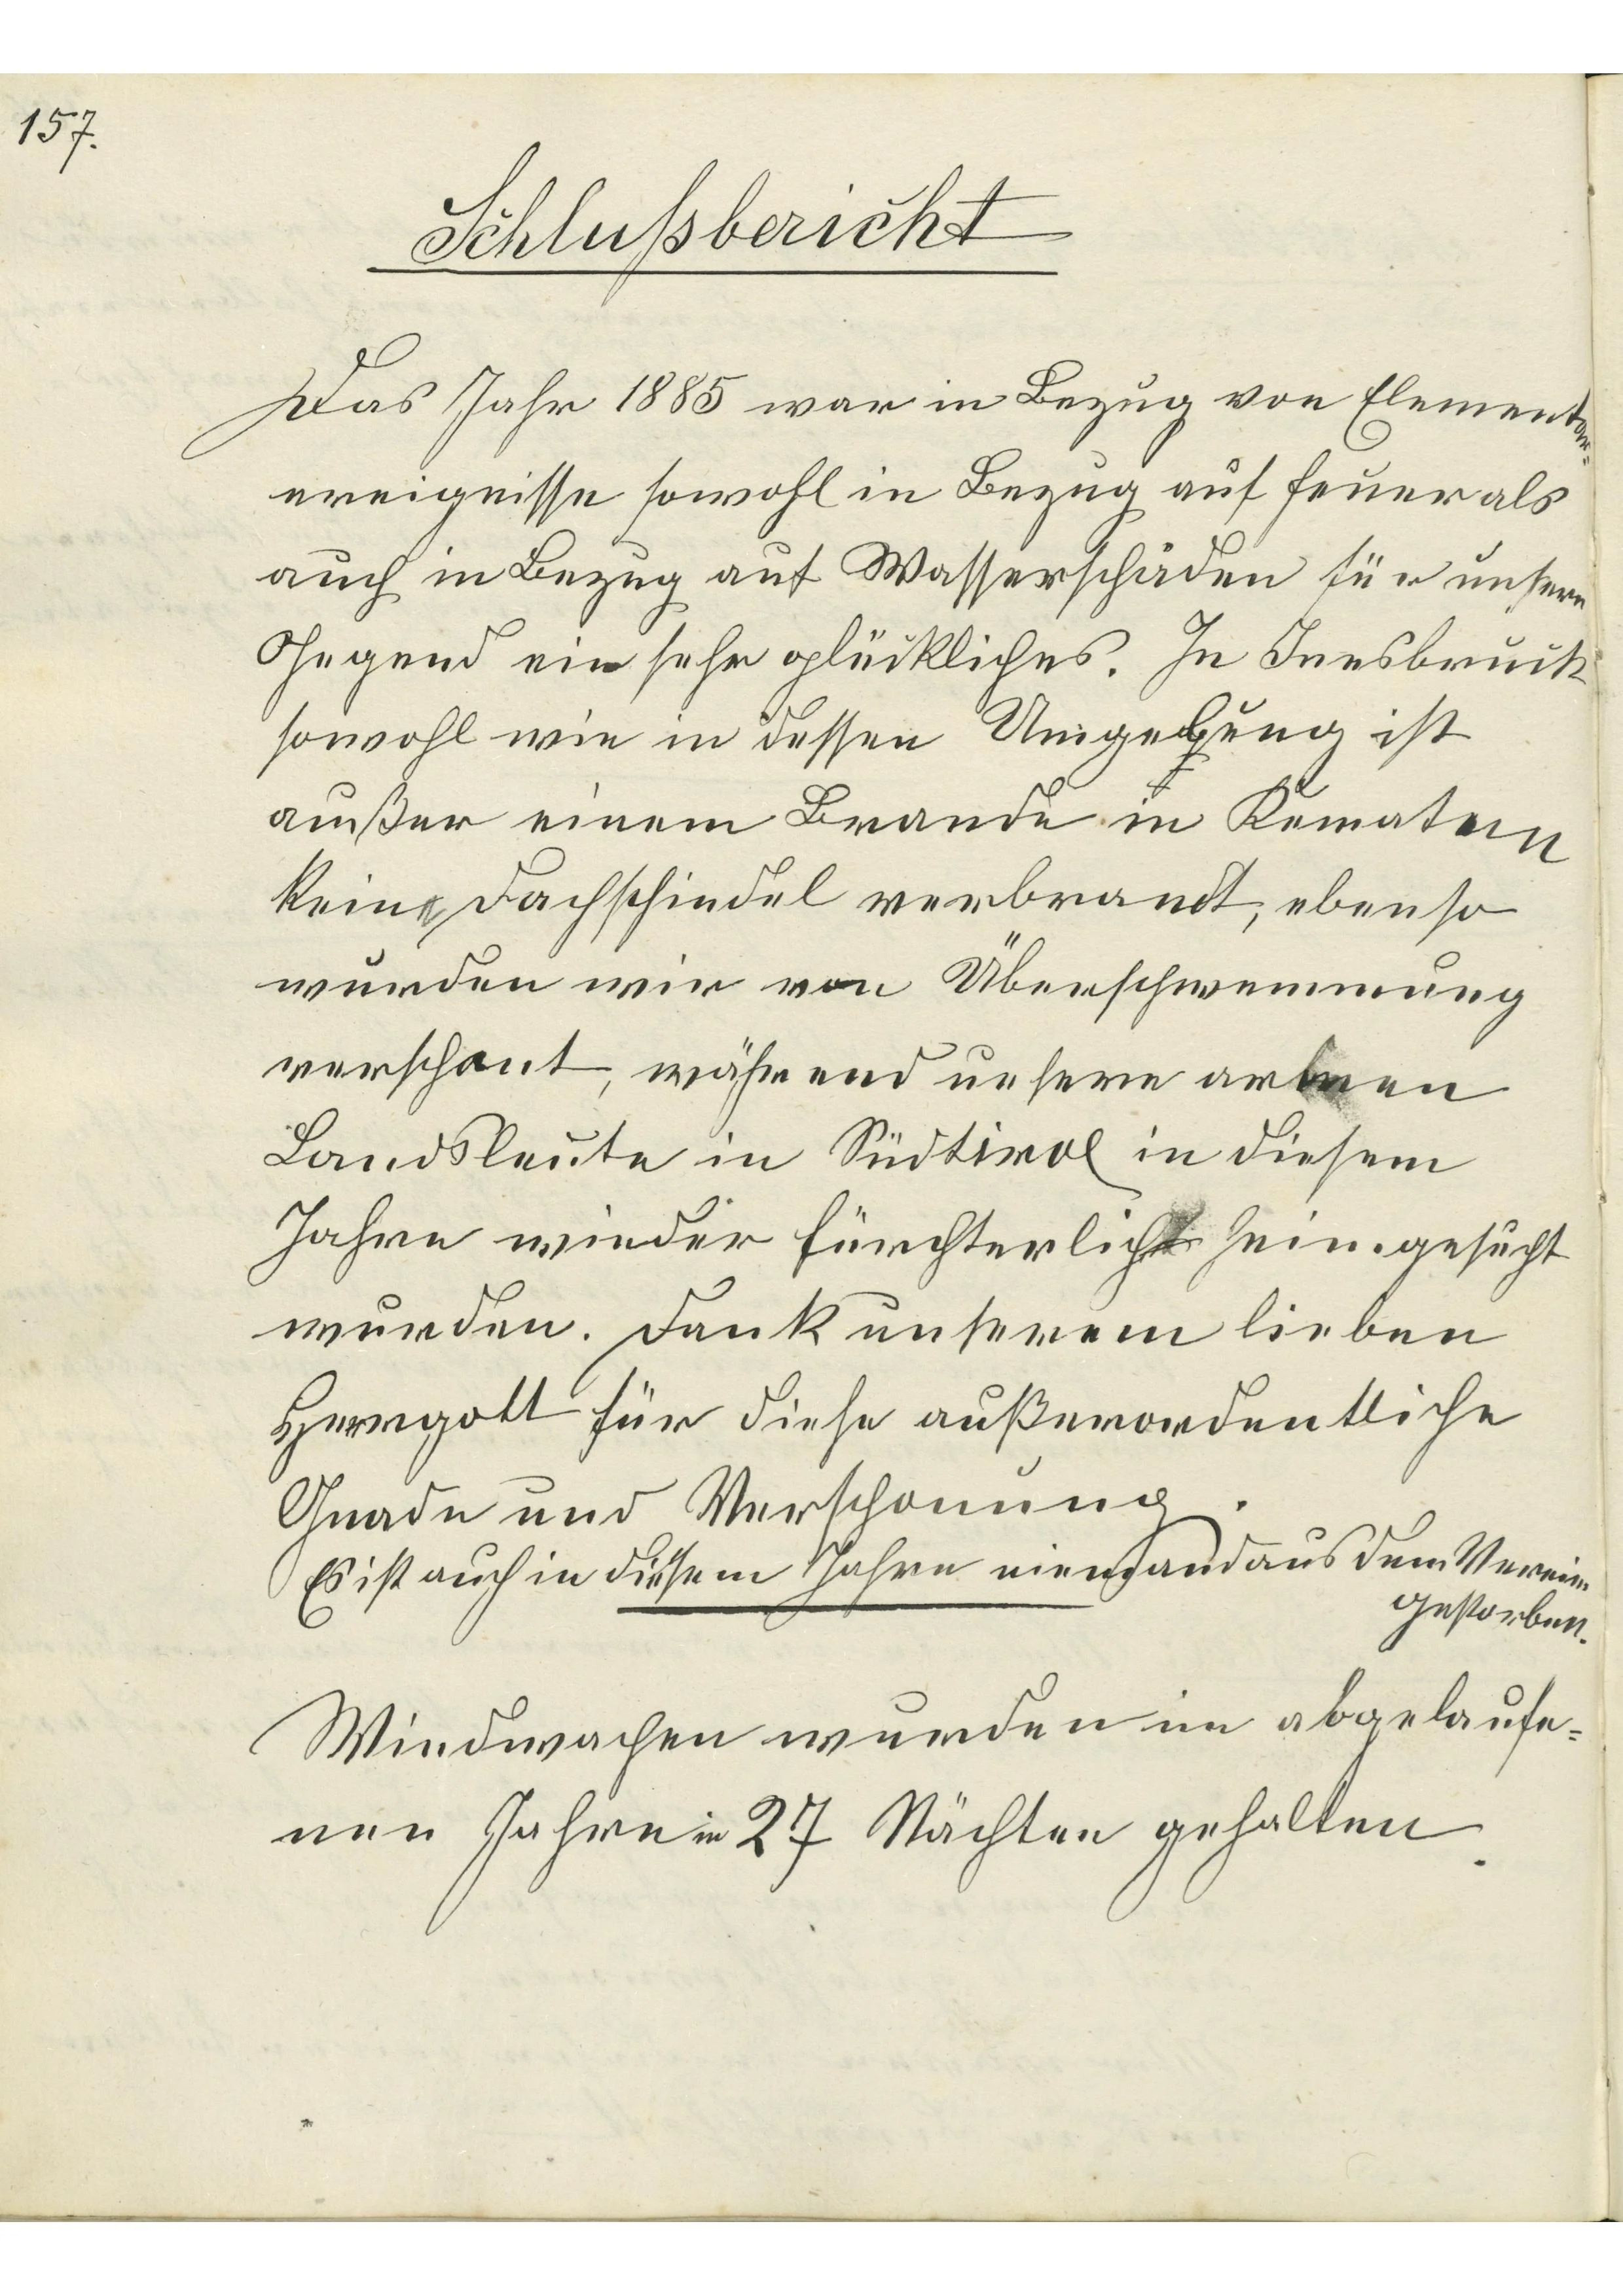 157.
Schlußbericht
Das Jahr 1885 war in Bezug von Elementar=
ereignisse sowohl in Bezug auf Feuer als
auch in Bezug auf Wasserschäden für unsere
Gegend ein sehr glückliches. In Innsbruck
sowohl wie in dessen Umgebung ist
außer einem Brande in Kematen
keine Dachschindel verbrandt, ebenso
wurden wir von Überschwemmung
verschont, während unsere armen
Landsleute in Südtirol in diesem
Jahre wieder fürchterlich heimgesucht
wurden. Dank unserem lieben
Herrgott für diese außerordentliche
Gnade und Verschonung.
Es ist auch in diesem Jahre niemand aus dem Verein
gestorben.
Windwachen wurden im abgelaufe=
nen Jahre in 27 Nächten gehalten.